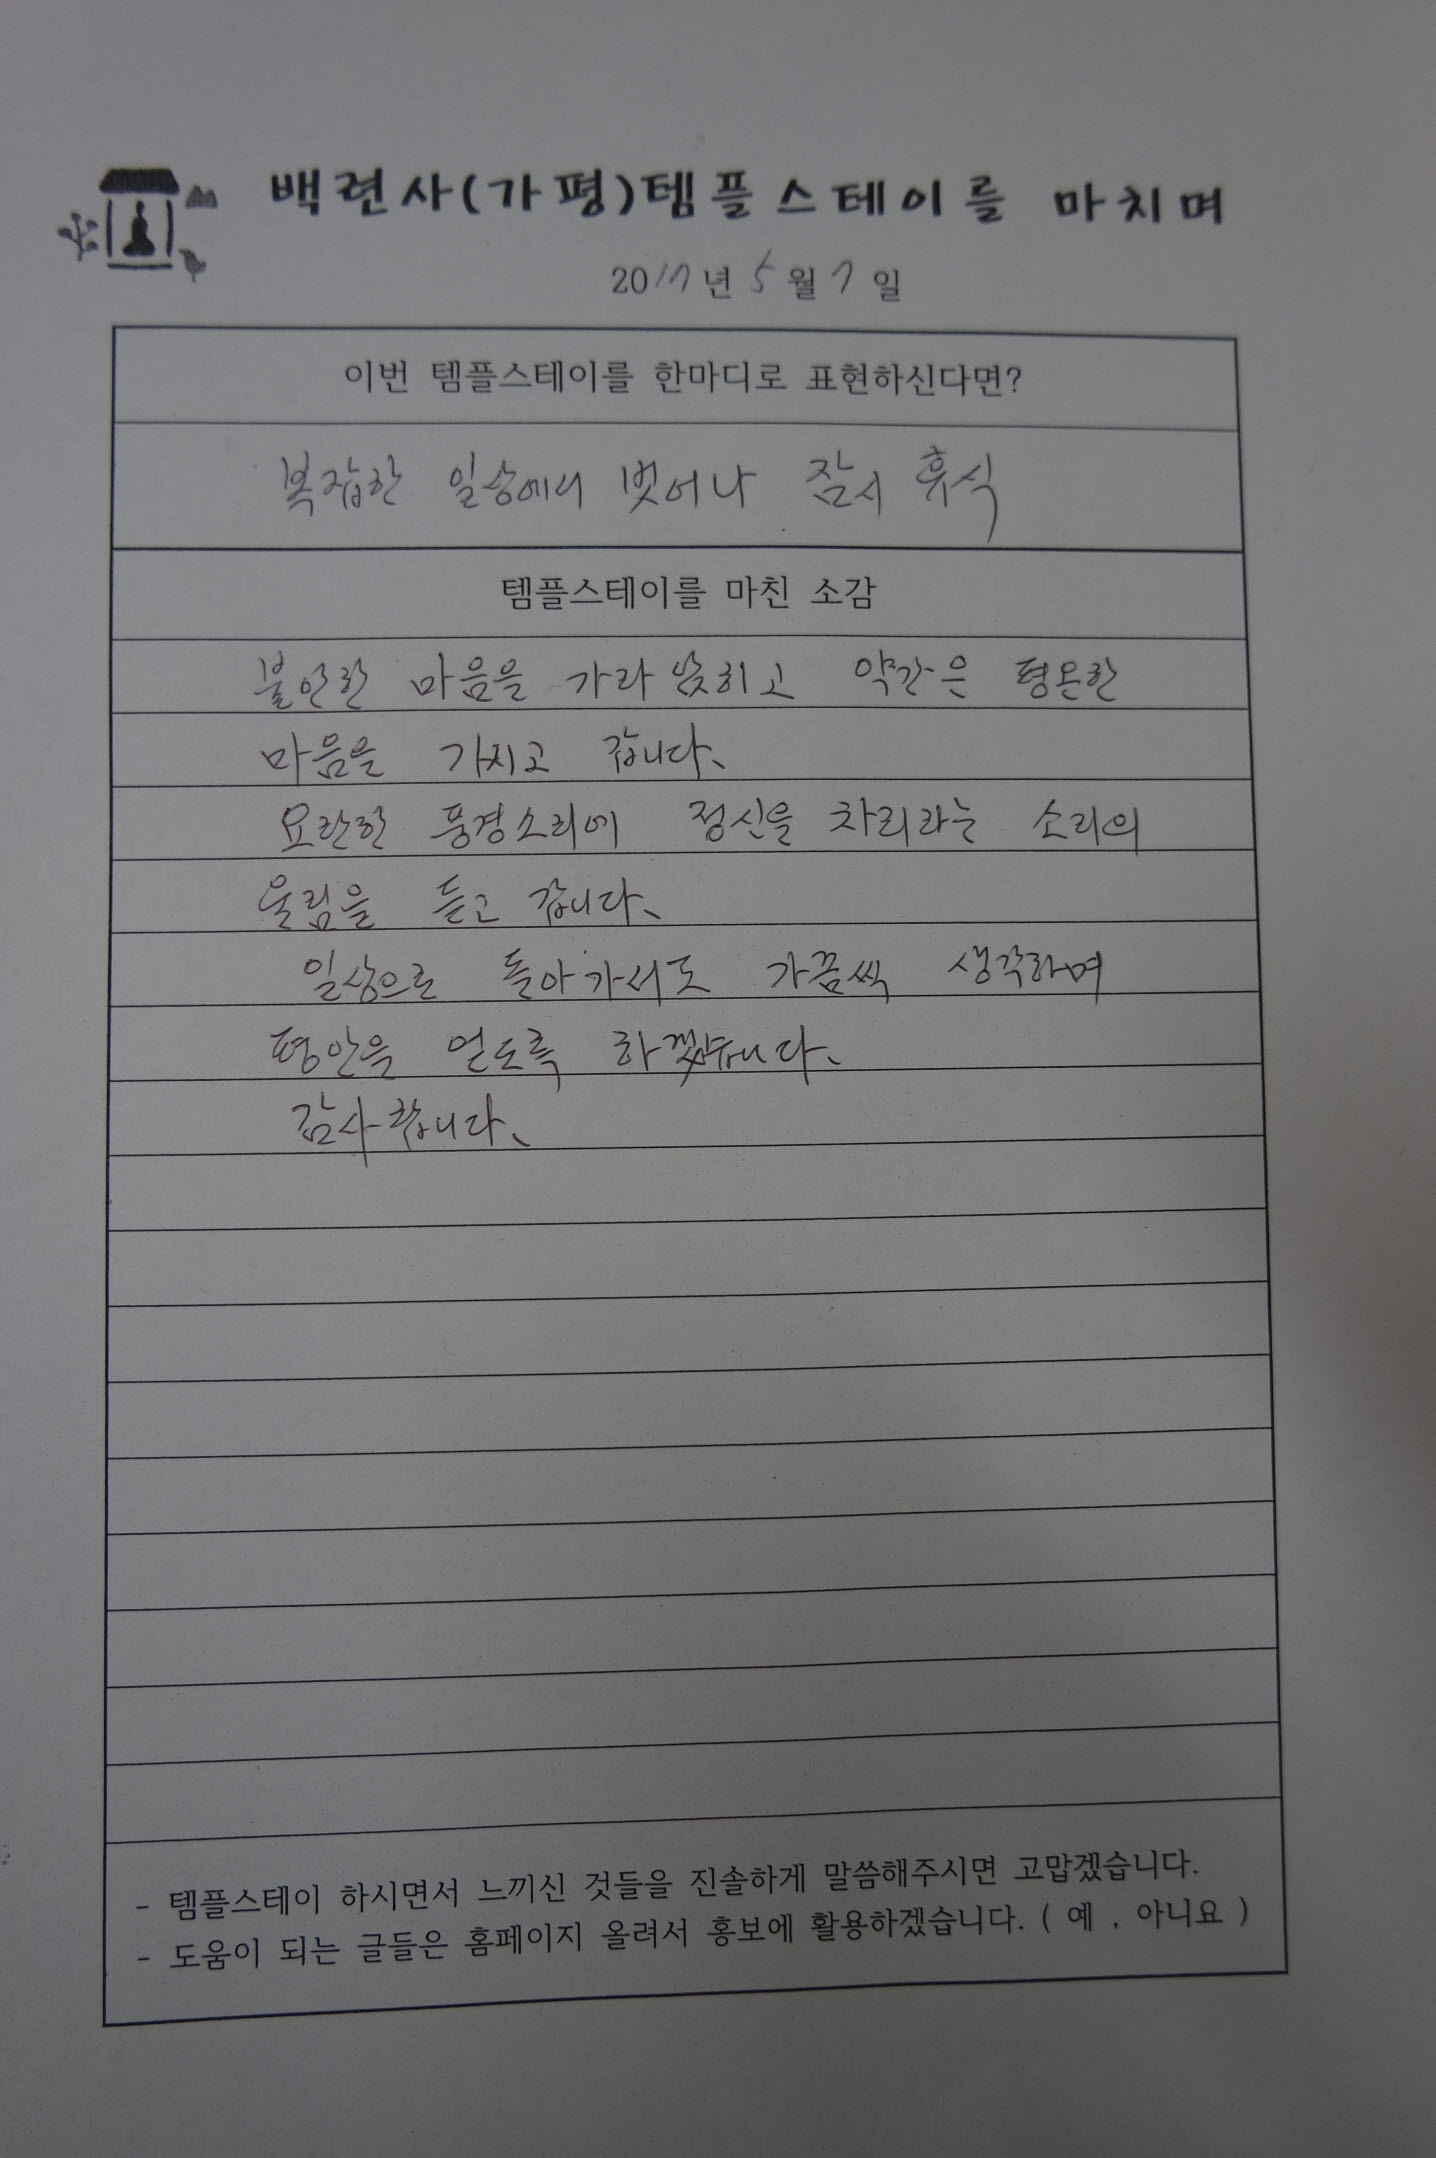 백련사(가평)템플스테이를 마치며
2017년 5월 7일
이번 템플스테이를 한마디로 표현하신다면?
복잡한 일상에서 벗어나 잠시 휴식
템플스테이를 마친 소감
불안한 마음을 가라앉히고 약간은 평온한
마음을 가지고 갑니다.
요란한 풍경소리에 정신을 차리라는 소리의
울림을 듣고 갑니다.
일상으로 돌아가서도 가끔씩 생각하며
평안을 얻도록 하겠습니다.
감사합니다.
- 템플스테이 하시면서 느끼신 것들을 진솔하게 말씀해주시면 고맙겠습니다.
- 도움이 되는 글들은 홈페이지 올려서 홍보에 활용하겠습니다. ( 예 , 아니요 )